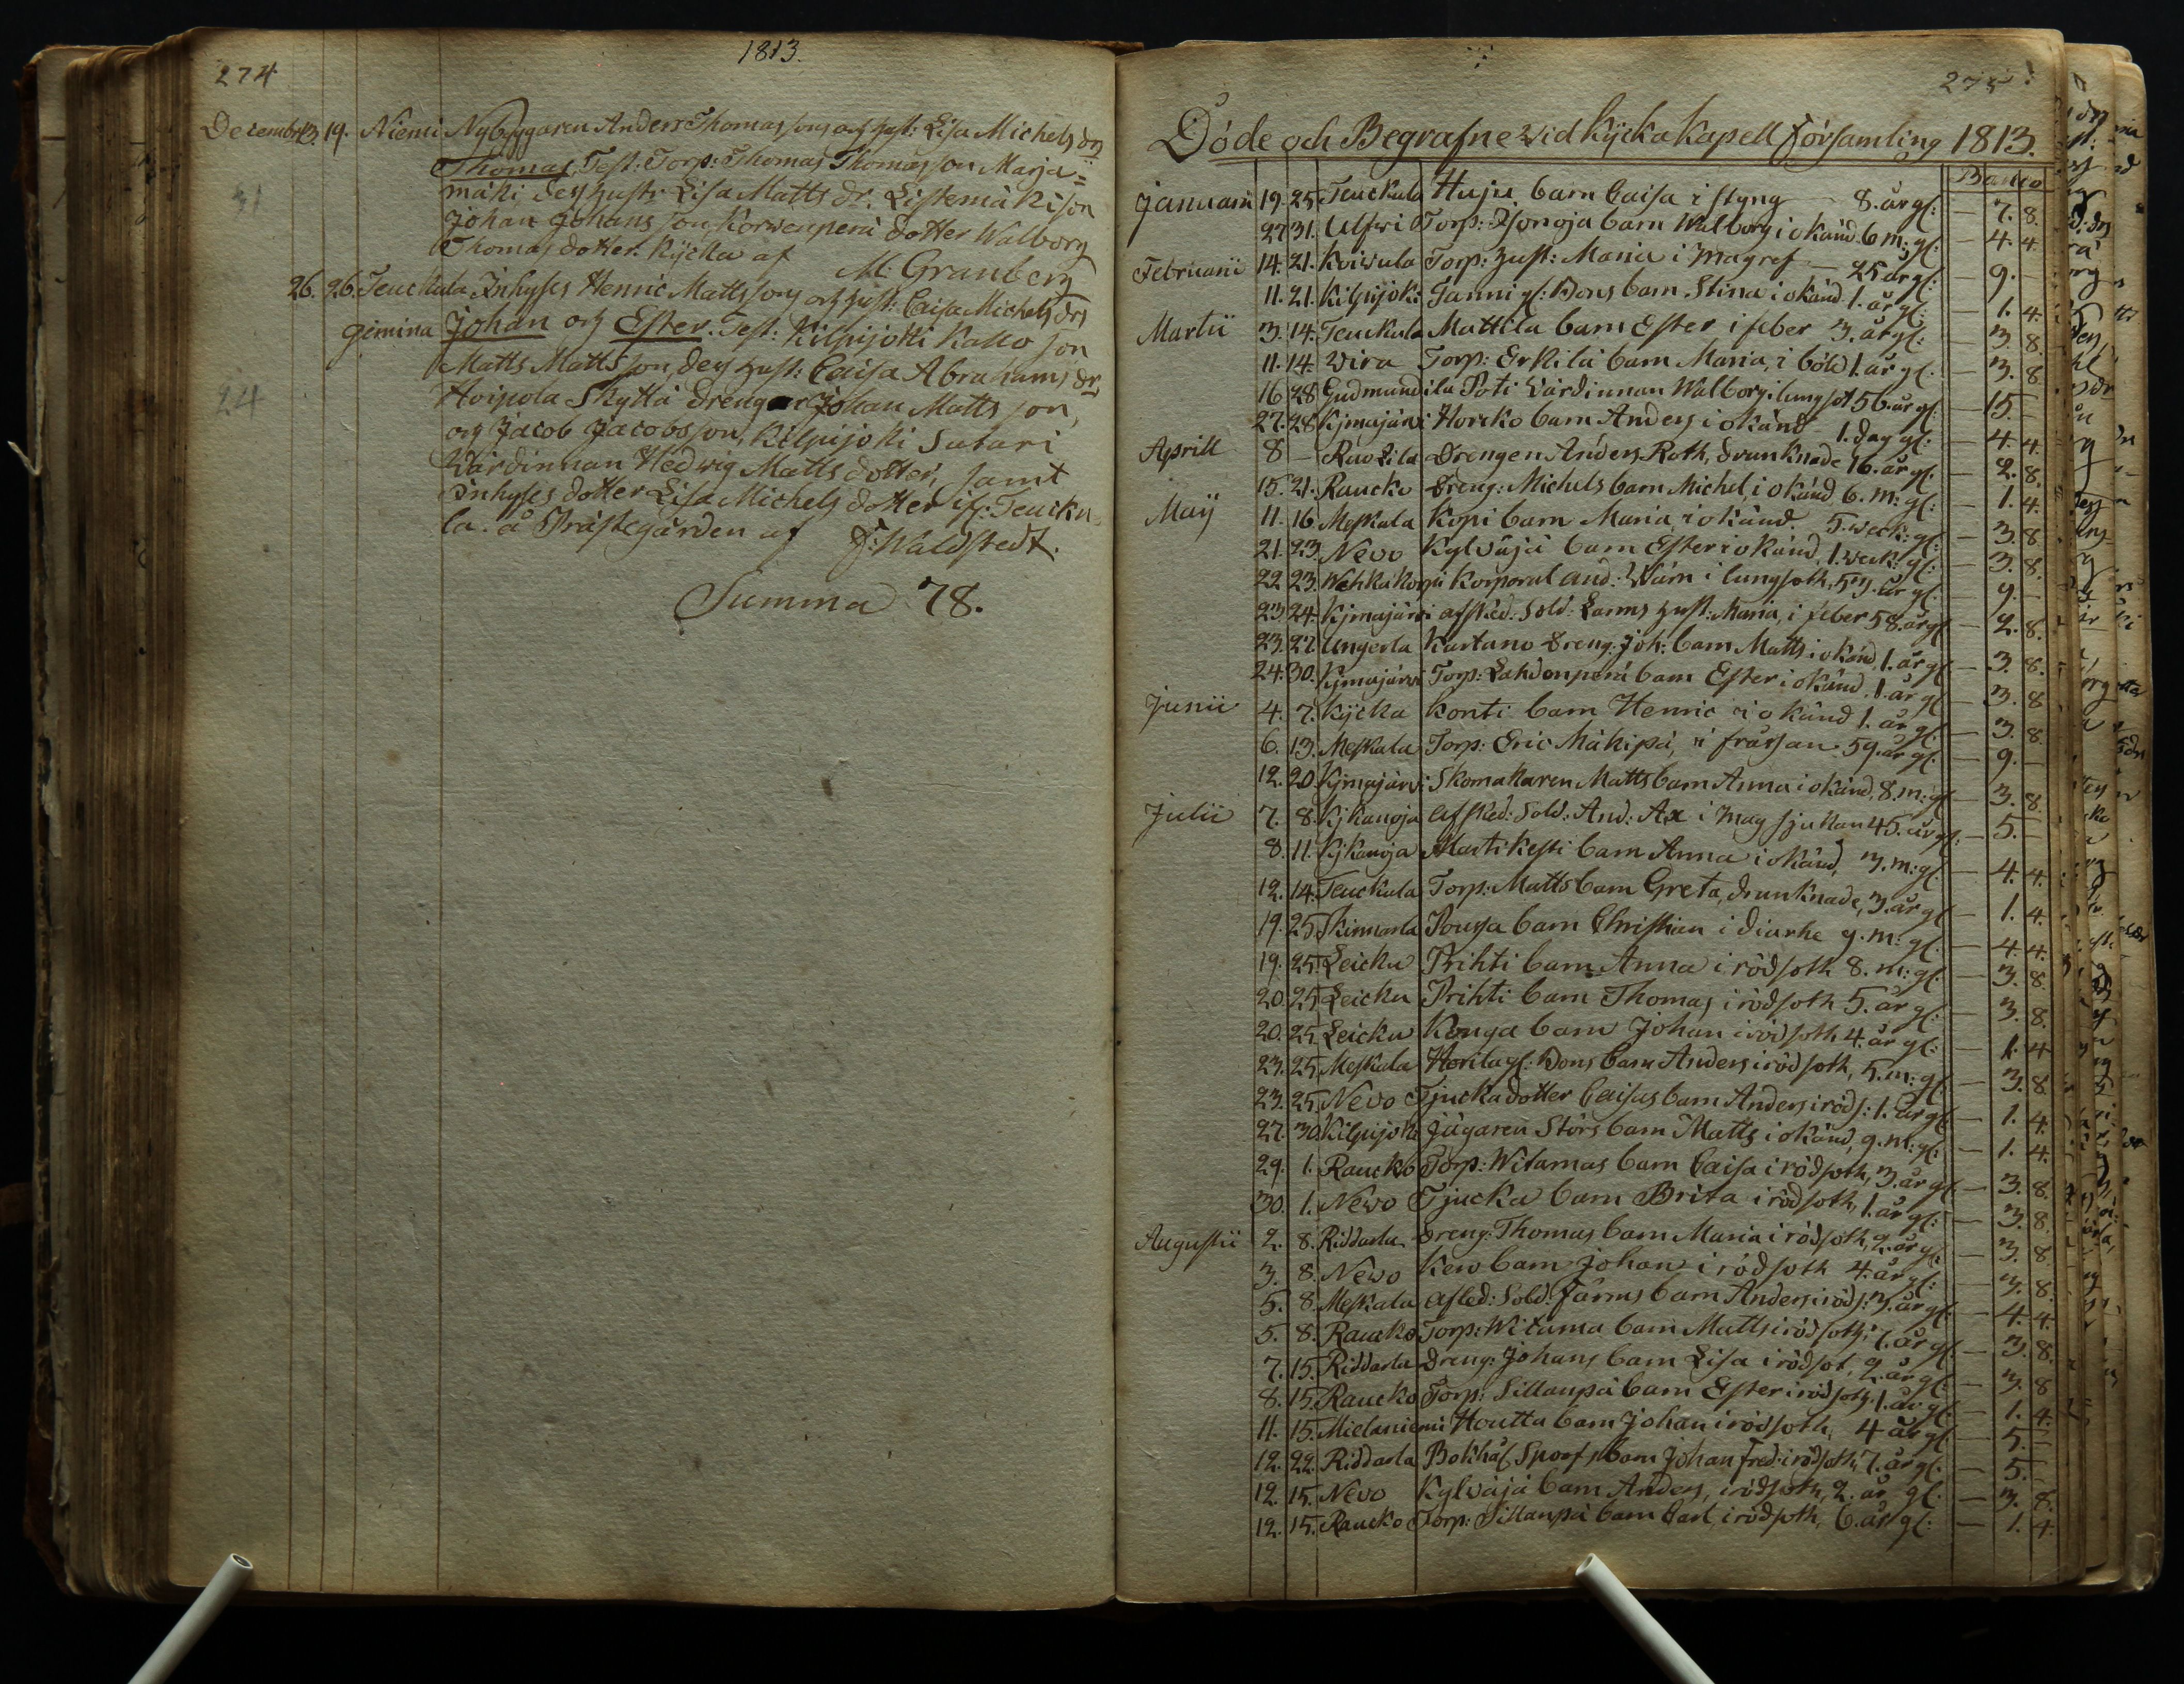 274
1813.
Decembr 13. 19. Niemi Nybyggaren Anders Thomassons och hust: Lisa Michelsdrs
Thomas. Test: Torp: Thomas Thomasson Marja=
mäki des hustr. Lisa Matts dr. Listemäki son
Johan Johans son, Korwenperä dotter Walborg
Thomas dotter. Kijcka af M: Granberg
26. 26. Teuckula Inhyses Henric Mattssons och hust: Caisa Michelsdrs
gemina Johan och Ester. Test: Kilpijoki Kallo son
Matts Mattsson, des hust: Caisa Abrahams dr,
Hoipola Skyttä drengar Johan Matts son
och Jacob Jacobsson, Kilpijoki Sutari
Wärdinnan Hedwig Matts dotter, samt
inhyses dotter Lisa Michels dotter ifr: Teucku=
la. å Prästegården af F: Waldstedt.
31
24
Summa 78.
275
Döde och Begrafne wid Kijcka Kapell Församling 1813.
Banco
Januarii 19. 25. Teuckula Huju barn Caisa i styng 8. år gl: — 7. 8.
27 31. Ulfwi Torp: Isonoja barn Walborg i okänd 6 m: gl: — 4. 4.
Februarii 14. 21. Koiwula Torp: hust: Maria i magref — 25 år gl: — 9. —
11. 21. Kilpijoki Tanni gl: Bons barn Stina i okänd. 1. år gl: — 1. 4.
Martii 3. 14. Teuckula Mattila barn Ester i feber 3. år gl: — 3. 8.
11. 14. Wira Torp: Erkilä barn Maria, i böld 1. år gl: — 3. 8.
16 28 Gudmundila Poti Wärdinnan Walborg i lungsot 56. år gl: — 15. —
27. 28 Kjmajärvi Horcko barn Anders i okänd 1. dag gl: — 4. 4.
Aprill 8 — Rautila Drengen Anders Roth, drunknade 16. år gl. — 2. 8.
15. 21. Raucko Dreng: Michels barn Michel, i okänd 6. m: gl: — 1. 4.
Maij 11. 16. Meskala Kopi barn Maria i okänd. 5. weck: gl: — 3. 8
21. 23. Nevo Kylväjä barn Ester i okänd, 1. weck: gl: — 3. 8.
22 23. Wahkakorpi Korporal And: Wärn i lungsoth, 53. år gl. — 9. —
23. 24. Kjmajärvi afsked: Sold: Larms hust: Maria, i feber 58. år gl — 2. 8.
23. 27. Ungerla Kartano Dreng: Joh: barn Matts i okänd, 1. år gl — 3. 8.
24. 30. Kjmajärvi Torp: Lahdenperä barn Ester i okänd. 1. år gl — 3. 8
Junii 4. 7. Kijcka Konti barn Henric i okänd 1. år gl: — 3. 8.
6. 13. Meskala Torp: Eric Mäkipä, i frässan 59. år gl. — 9. —
12. 20. Kjmajärvi Skomakaren Matts barn Anna i okänd, 8. m: gl — 3. 8.
Julii 7. 8. Kjkanoja afsked: Sold: And: Ax i Magsjukan 45. år gl: — 5. —
8. 11. Kjkanoja Martikesti barn Anna i okänd, 3. m: gl: — 4. 4.
12. 14. Teuckula Torp: Matts barn Greta, drunknade, 3. år gl — 1. 4.
19. 25. Skinnarla Pousa barn Christian i diarhe 9. m: gl. — 4. 4.
19. 25. Leicku Prihti barn Anna i rödsoth 8. m: gl: — 3. 8.
20. 25. Leicku Prihti barn Thomas i rödsoth 5. år gl: — 3. 8.
20. 25. Leicku Kouga barn Johan i rödsoth 4. år gl: — 1. 4
23. 25. Meskala Horila gl: Bons barn Anders i rödsoth, 5. m: gl: — 3. 8
23. 25. Nevo Tjucka dotter Caisas barn Anders i röds: 1. år gl: — 1. 4.
27. 30. Kilpijoki Jägaren Störs barn Matts i okänd, 9. m: gl: — 1. 4.
29. 1. Raucko Torp: Witamas barn Caisa i rödsoth, 3. år gl. — 3. 8.
30. 1. Nevo Tjucka barn Brita i rödsoth, 1. år gl: — 3. 8
Augustii 2. 8. Riddarla Dreng: Thomas barn Maria i rödsoth, 2. år gl: — 3. 8
3. 8. Nevo Kewo barn Johan i rödsoth 4. år gl: — 3. 8.
5. 8. Meskala afsked: Sold: Färms barn Anders i röds: 3. år gl. — 4. 4.
5. 8. Raucko Torp: Witama barn Matts i rödsoth, 7. år gl — 3. 8.
7. 15. Riddarla Dreng: Johans barn Lisa i rödsot, 2. år gl — 3. 8
8. 15. Raucko Torp: Sillanpä barn Ester i rödsoth, 1. år gl: — 1. 4.
11. 15. Mielaniemi Houtta barn Johan i rödsoth, 4 år gl — 5. —
12. 22. Riddarla Bokhål. Spoofs barn Johan Fred: i rödsoth, 7. år gl. — 5. —
12. 15. Nevo Kylväjä barn Anders, i rödsoth, 2. år gl: — 3. 8.
12. 15. Raucko Torp: Sillanpä barn Carl, i rödsoth, 6. år gl: — 1. 4.